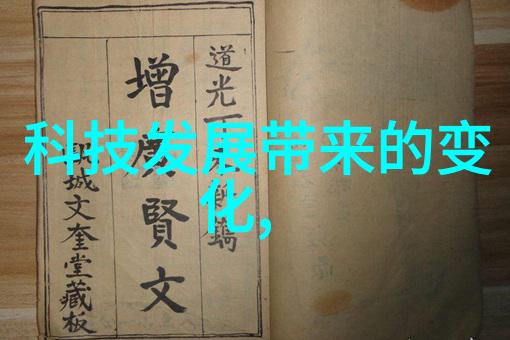 科技发展带来的变
化,
道光
鐫
增廣賢文
城文奎堂藏板